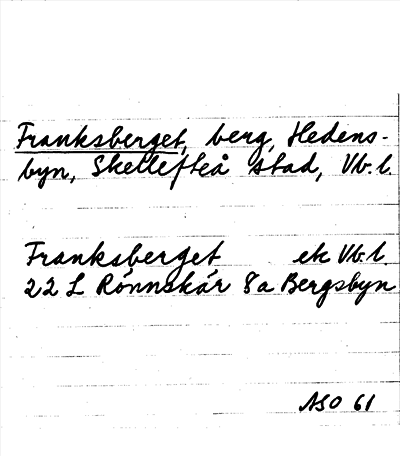 Franksberget, berg, Hedens-
byn, Skellefteå stad, Vb.l.
Franksberget ek Vb.l.
22 L Rönnskär 8a Bergsbyn
ASO 61